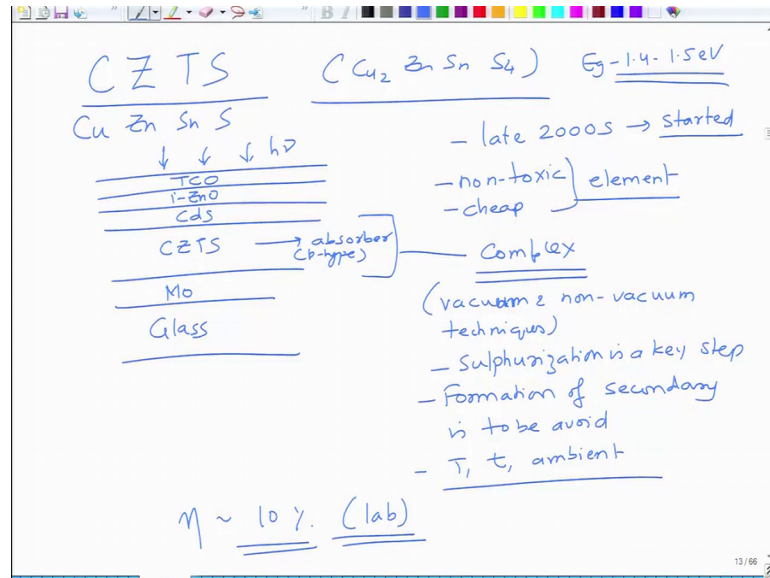 CZTS (Cu2 Zn Sn S4) Eg-1.4-1.5eV
Cu Zn Sn S
hν
TCO
i-ZnO
CdS
CZTS → absorber
(p-type)
Mo
Glass
- late 2000s → started
- non-toxic
- cheap
element
Complex
(vacuum & non-vacuum
techniques)
- Sulphurization is a key step
- Formation of secondary
is to be avoid
- T, t, ambient
η ~ 10 %. (lab)
13 / 66